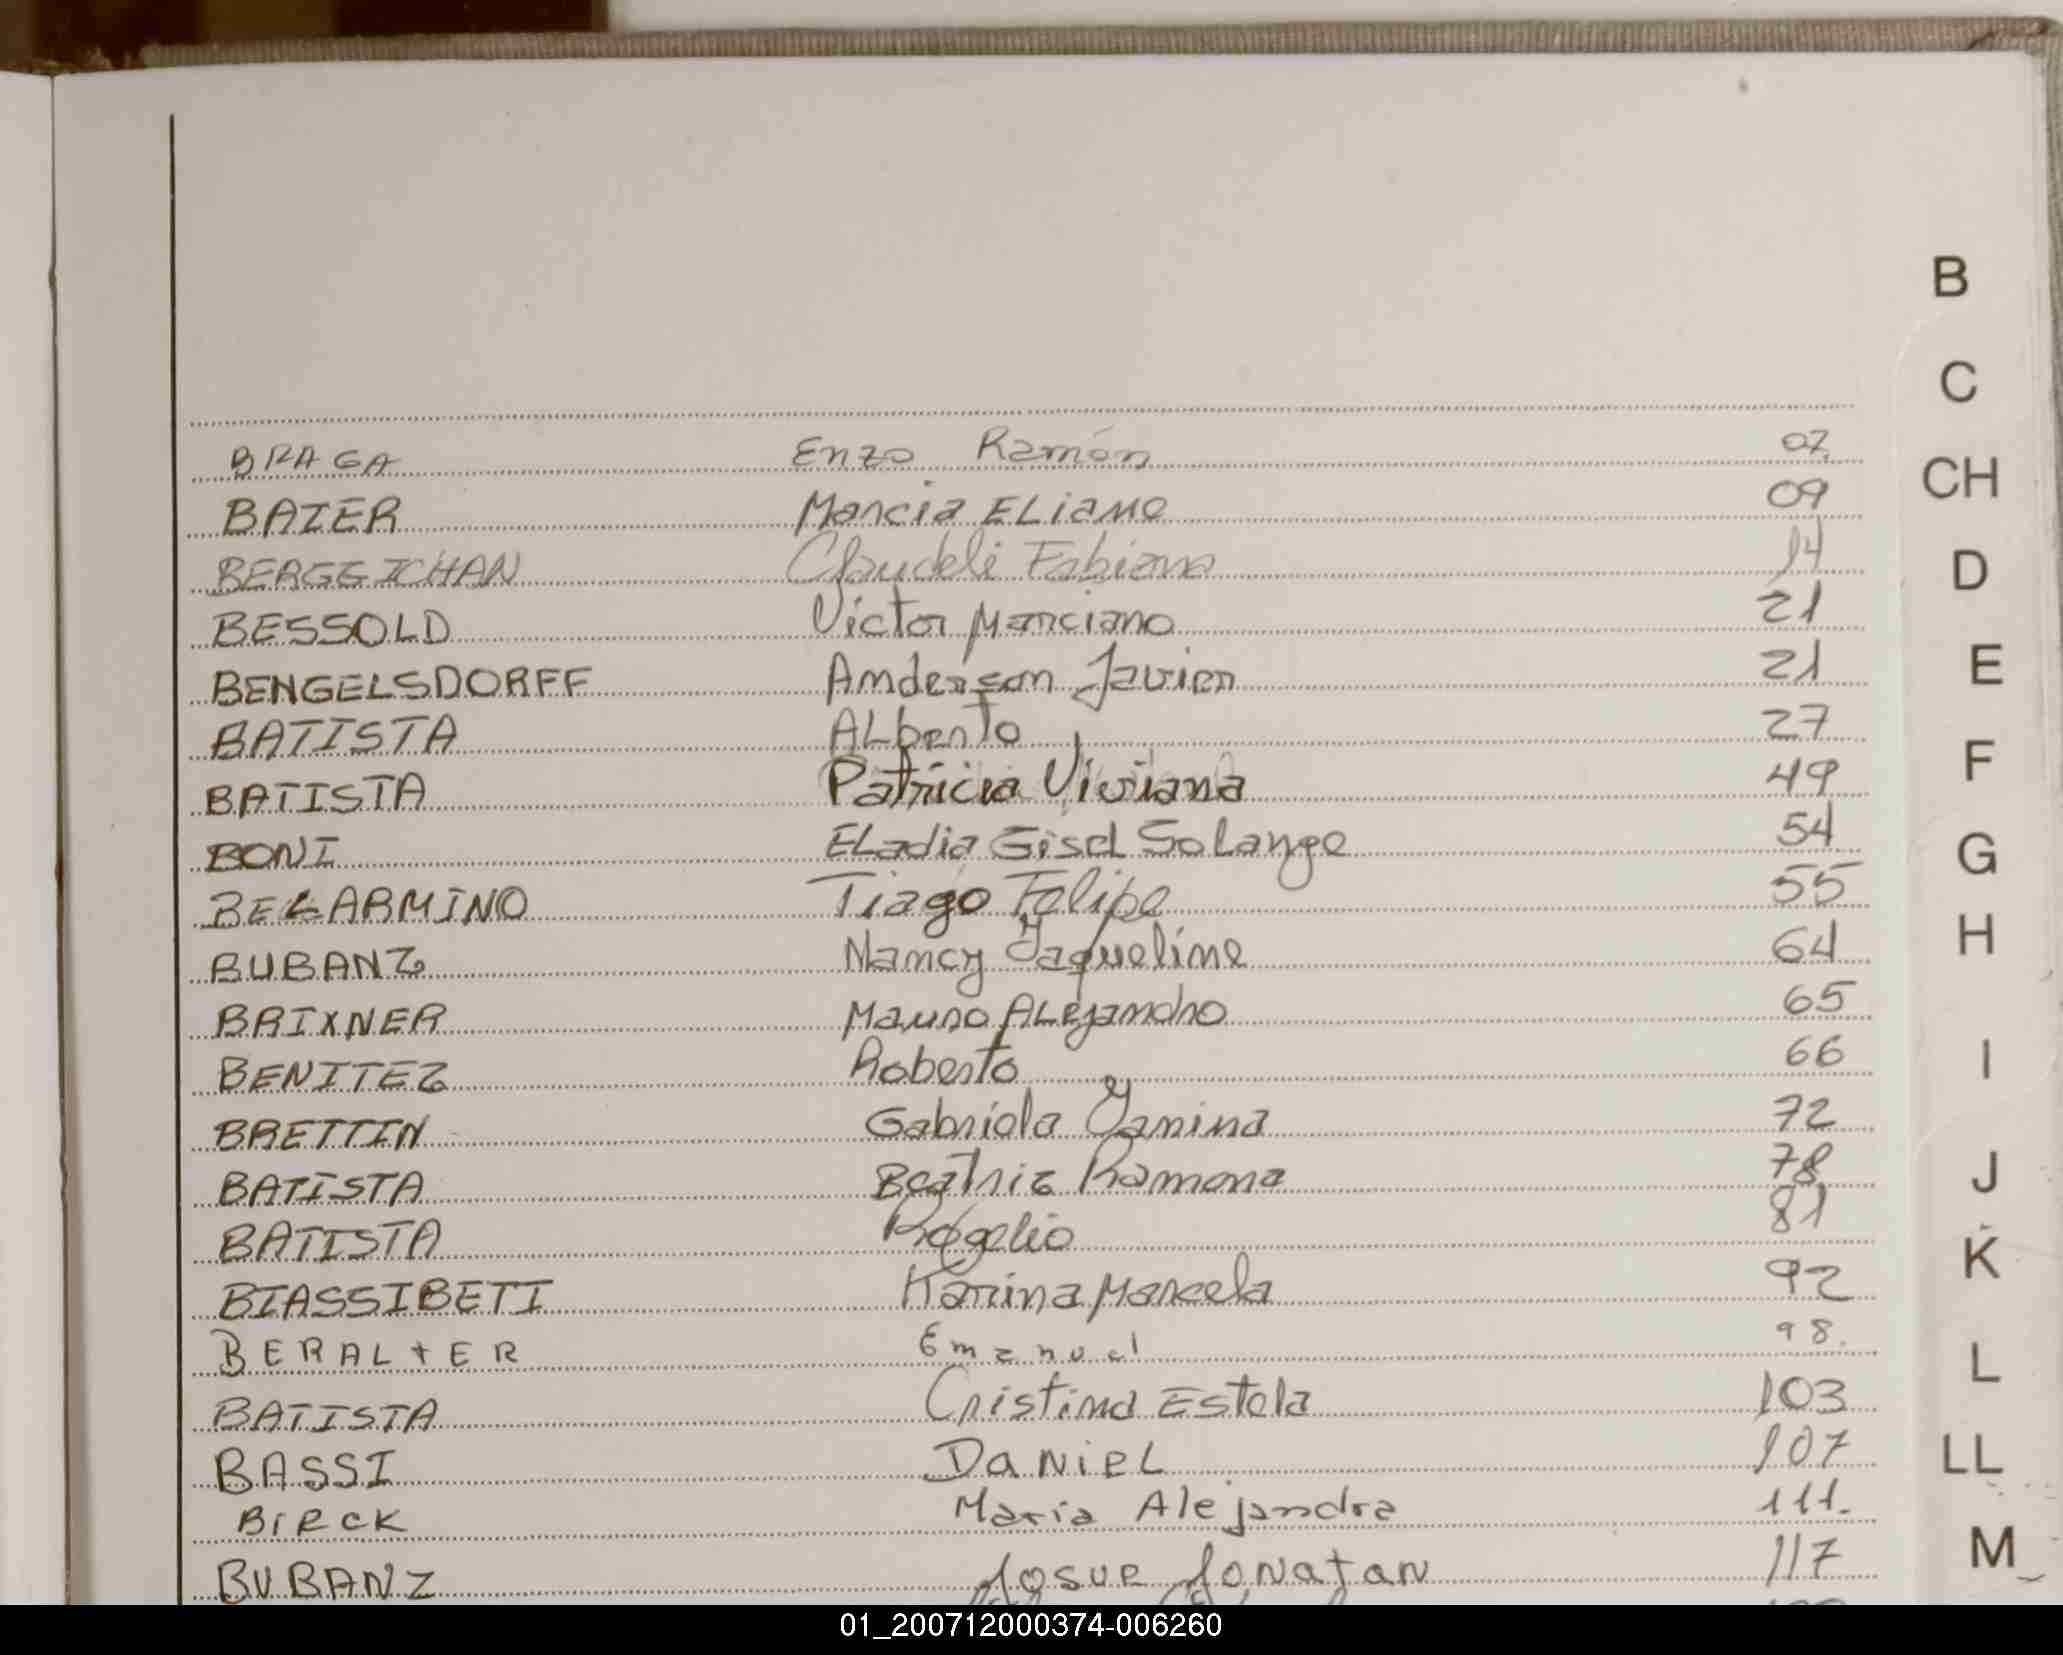 BRAGA Enzo Ramón 07
BAIER Marcia ELiane 09
BERGGICHAN Claudeli Fabiana 14
BESSOLD Victor Marciano 21
BENGELSDORFF Anderson Javier 21
BATISTA ALberto 27
BATISTA Patricia Viviana 49
BONI ELadia Gisel Solange 54
BELARMINO Tiago Felipe 55
BUBANZ Nancy Yaqueline 64
BRIXNER Mauro ALejandro 65
BENITEZ Roberto 66
BRETTIN Gabriela Yanina 72
BATISTA Beatriz Ramona 78
BATISTA Rogelio 81
BIASSIBETI Karina Marcela 92
BERALTER Emanuel 98.
BATISTA Cristina Estela 103
BASSI DaNiel 107
BIRCK Maria Alejandra 111.
BUBANZ Josue JoNatan 117
B
C
CH
D
E
F
G
H
I
J
K
L
LL
M
01_200712000374-006260